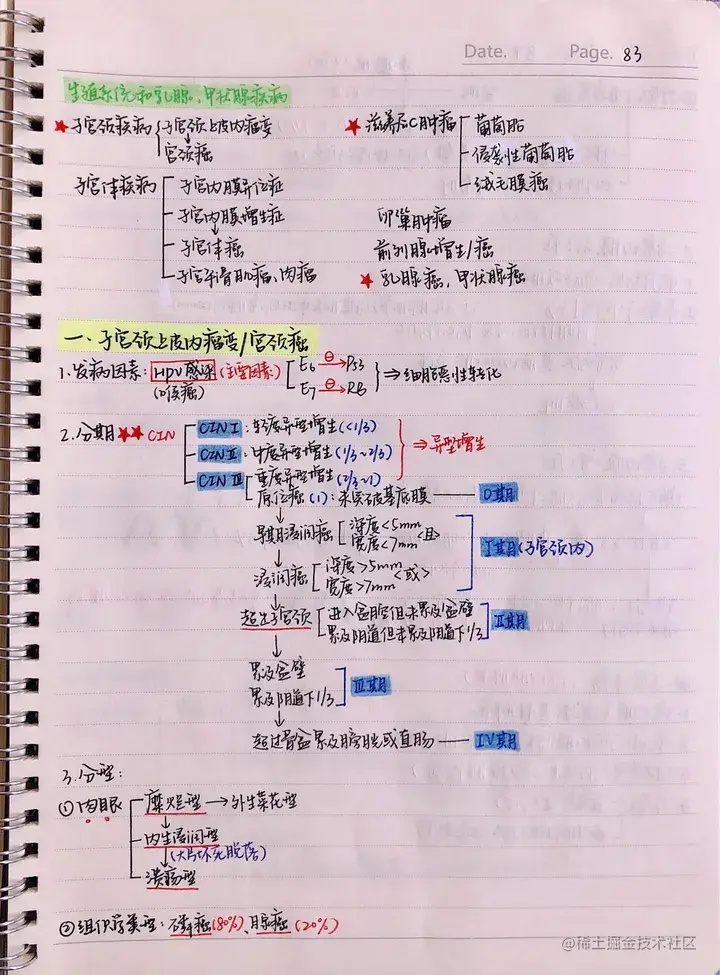 Date. Page. 83
生殖系统和乳腺,甲状腺疾病
★子宫颈疾病 子宫颈上皮内瘤变
↓
宫颈癌
★滋养层C肿瘤 葡萄胎
侵袭性葡萄胎
绒毛膜癌
子宫体疾病 子宫内膜异位症
子宫内膜增生症
↓
子宫体癌
子宫平滑肌瘤、肉瘤
卵巢肿瘤
前列腺增生/癌
★乳腺癌,甲状腺癌
一、子宫颈上皮内瘤变/宫颈癌
1.发病因素:HPV感染(主要因素) E6 ⊖→P53
(0号癌) E7 ⊖→RB ⇒细胞恶性转化
2.分期★★CIN CINⅠ:轻度异型增生(<1/3)
CINⅡ:中度异型增生(1/3~2/3) ⇒异型增生
CINⅢ 重度异型增生(2/3~1)
原位癌(1):未突破基底膜——0期
↓
早期浸润癌 深度<5mm
宽度<7mm <且>
↓
浸润癌 深度>5mm
宽度>7mm <或>
Ⅰ期(子宫颈内)
↓
超出子宫颈 进入盆腔但未累及盆壁
累及阴道但未累及阴道下1/3 Ⅱ期
↓
累及盆壁
累及阴道下1/3 Ⅲ期
↓
超过骨盆累及膀胱或直肠——ⅠV期
3.分型:
①肉眼 糜烂型→外生菜花型
↓
内生浸润型
↓(大片坏死脱落)
溃疡型
②组织学类型:鳞癌(80%)、腺癌(20%)
@稀土掘金技术社区